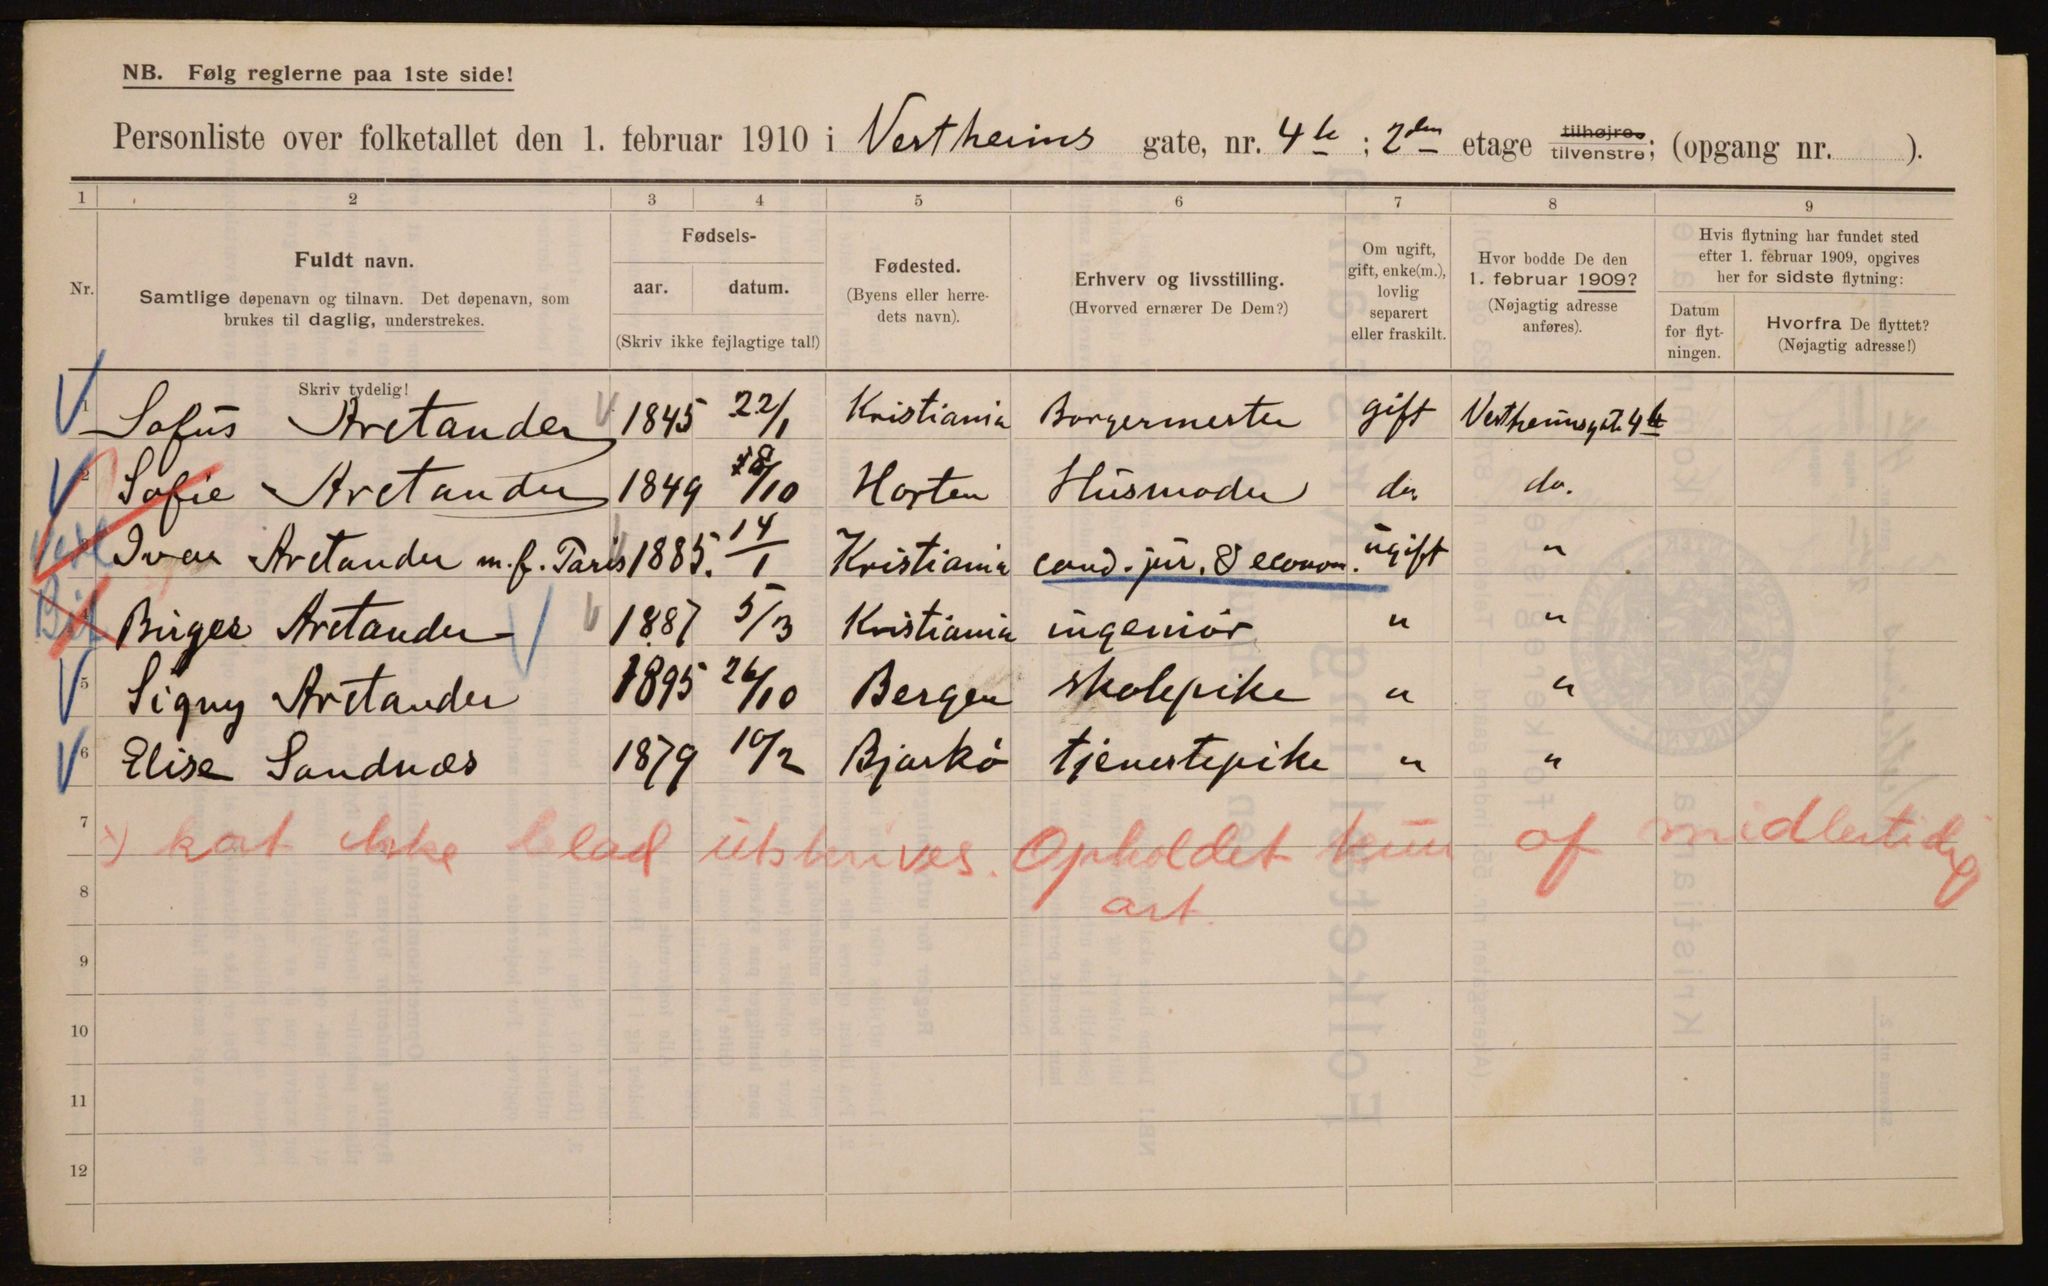 NB. Følg reglerne paa 1ste side!
Personliste over folketallet den 1. februar 1910 i Vestheims gate, nr. 4 b ; 2 den etage tilhøjre tilvenstre; (opgang nr. ).
1 2 3 4 5 6 7 8 9
Nr.
Fuldt navn.
Samtlige døpenavn og tilnavn. Det døpenavn, som
brukes til daglig, understrekes.
Fødsels-
aar. datum.
(Skriv ikke fejlagtige tal!)
Fødested.
(Byens eller herre-
dets navn).
Erhverv og livsstilling.
(Hvorved ernærer De Dem?)
Om ugift,
gift, enke(m.),
lovlig
separert
eller fraskilt.
Hvor bodde De den
1. februar 1909?
(Nøjagtig adresse
anføres).
Hvis flytning har fundet sted
efter 1. februar 1909, opgives
her for sidste flytning:
Datum
for flyt-
ningen.
Hvorfra De flyttet?
(Nøjagtig adresse!)
Skriv tydelig!
1 Sofus Arctander 1845 22/1 Kristiania Borgermester gift Vestheimsgt. 4 b
2 Sofie Arctander 1849 8/10 Horten Husmoder do. do.
3 Ivar Arctander m. f. Paris 1885. 14/1 Kristiania cand. jur. & econom. ugift "
4 Birger Arctander 1887 5/3 Kristiania ingeniör " "
5 Signy Arctander 1895 26/10 Bergen skolepike " "
6 Elise Sandnæs 1879 10/2 Bjarkö tjenestepike " "
7
kat ikke blad utskrives. Opholdet kun af midlertidig
8
art.
9
10
11
12